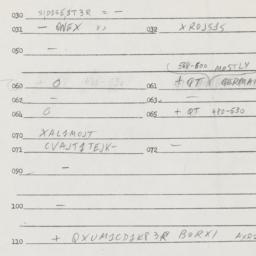 030 SIDDGEST3R = -
031 - QNEX 032 XROJS1S
050 -
(588-600 MOSTLY
060 O 061 + QT GERMAN
062 - 063 -
064 O 065 + QT 480-530
070 XALIMOJT
071 CVAJT1TEJK- 072 -
090 -
100 -
110 + QXUM1CD1K83R BORX1